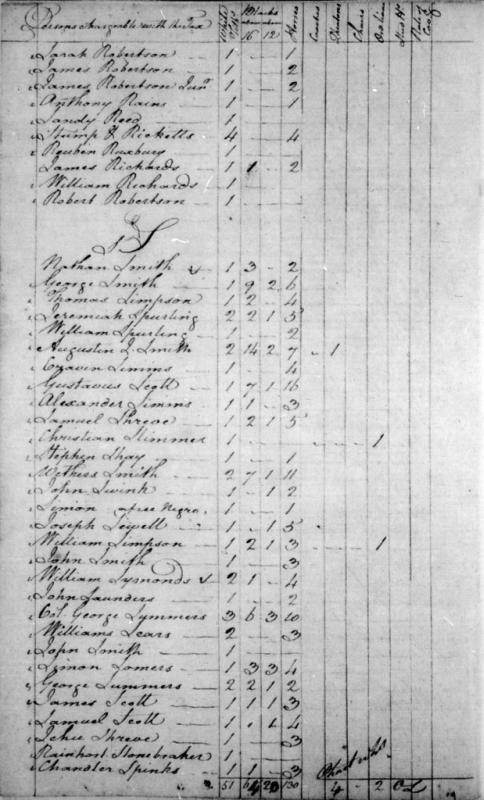 Persons Chargeable with the Tax White Blacks 16 12 Horses
Sarah Robertson — 1 - - 1
James Robertson — 1 2
James Robertson Junr 1 - - 2
Anthony Rains — 1 1
Sandy Reed 1
Stump & Ricketts 4 - - 4
Reuben Roxbury 1
James Richards — 1 1 2
William Richards — 1
Robert Robertson — 1 - - -
S
Nathan Smith 1 3 - 2
George Smith — 1 9 2 6
Thomas Simpson 1 2 - 4
Jeremiah Spurling 2 2 1 5
William Spurling 1 - - 2
Augustin J Smith 2 14 2 7 - 1
Cravin Simms 1 - 4
Gustavus Scott 1 7 1 16
Alexander Simms 1 1 - 3
Samuel Shreve 1 2 1 5
Christian Slimmer 1 - - - 1
Stephen Shay — 1 - - 1
Withers Smith — 2 7 1 11
John Swink 1 - 1 2
Simon a free Negro. 1 - 1
Joseph Sewell 1 - 1 5
William Simpson 1 2 1 3 1
John Smith 1 - 3
William Symonds 2 1 - 4
John Saunders — 1 - - 2
Col. George Summers 3 6 3 10
Williams Sears — 2 3
John Smith — 1
Simon Somers — 1 3 3 4
George Summers — 2 2 1 2
James Scott — 1 1 1 3
Samuel Scott — 1 . 1 4
Jehu Shreve 1 3
Rainhart Stonebraker 1
Chandler Spinks — 1 1 - 3
51 130 4 2